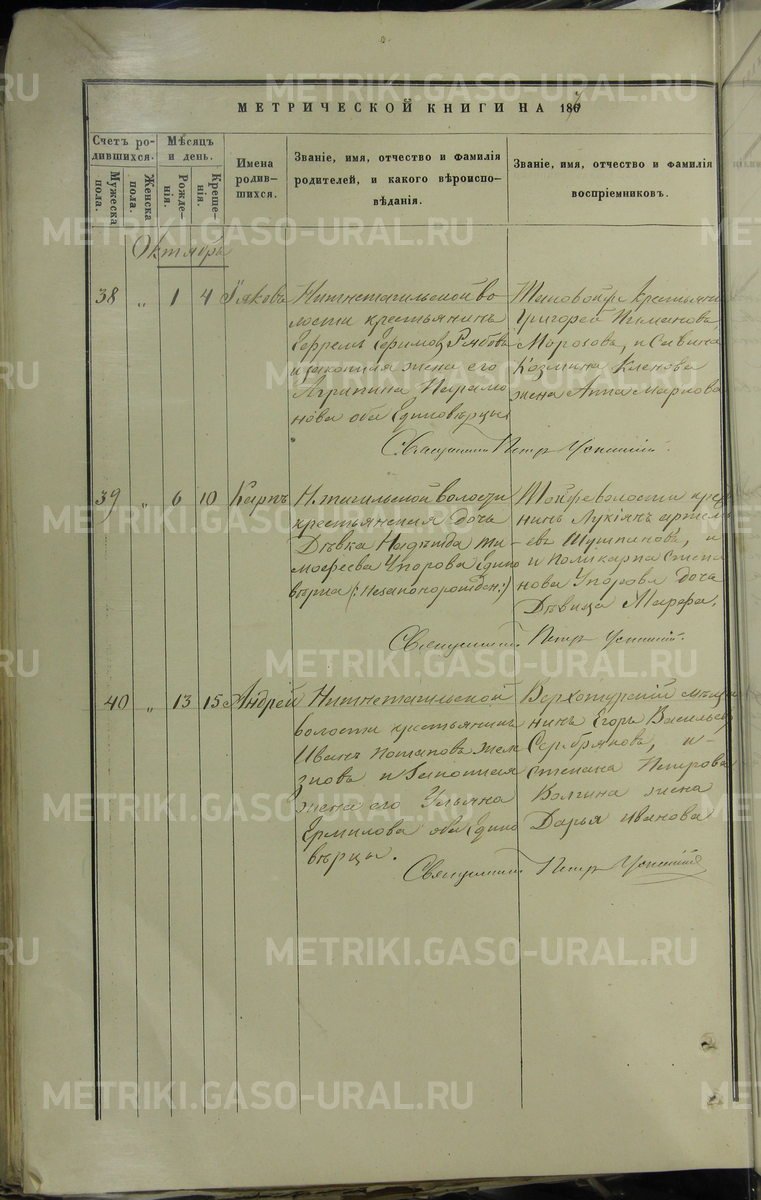 МЕТРИЧЕСКОЙ КНИГИ НА 187
Счетъ ро-
дившихся.
Мужеска
пола.
Женска
пола.
Мѣсяцъ
и день.
Рожде-
нія.
Креще-
нія.
Имена
родив-
шихся.
Званіе, имя, отчество и фамилія
родителей, и какого вѣроиспо-
вѣданія.
Званіе, имя, отчество и фамилія
воспріемниковъ.
Октябрь
38 „ 1 4 Іаковъ
Нижнетагильской во
лости крестьянинъ
Ефремъ Ефимовъ Рябовъ
и законная жена его
Агрипина Парамо
нова оба Единовѣрцы
Тановойже крестьянинъ
Григорей
Морозова, и Савина
Козмина Кленова
жена Анна Маркова
Священникъ Петръ Успенскій.
39 „ 6 10 Карпъ
Н. тагильской волости
крестьянская дочь
Дѣвка Надежда Ти-
мофеева Упорова Едино
вѣрка (: Незаконорожден:)
Тойже волости крес
нинъ Лукіянъ Артемь
евъ , и
и Поликарпа Степа
нова Упорова дочь
Дѣвица Марфа.
Священникъ Петръ Успенскій.
40 „ 13 15 Андрей
Нижнетагильской
волости крестьянинъ
Иванъ Потаповъ Желе
знова и Законная
жена его Ульяна
Ермилова оба Едино
вѣрцы.
Верхотурскій мѣща
нинъ Егоръ Васильевъ
Серебряковъ, и
Степана Петрова
Волгина жена
Дарья Иванова
Священникъ Петръ Успенскій
METRIKI.GASO-URAL.RU